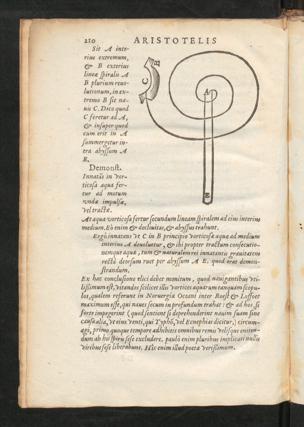 210 ARISTOTELIS
Sit A inte-
rius extremum,
& B exterius
lineæ spiralis A
B plurium reuo-
lutionum, in ex-
tremo B sit na-
uis C. Dico quod
C feretur ad A,
& insuper quod
cum erit in A
summergetur in-
tra abyssum A
B.
Demonst.
Innatãs in vor-
ticosa aqua fer-
tur ad motum
vndæ impulsæ,
vel tractæ.
At aqua vorticosa fertur secundum lineam spiralem ad eius interius
medium. Eò enim & decliuitas, & abyssus trahunt.
Ergò innatens vt C in B principio vorticosæ aquæ ad medium
interius A deuoluetur, & ibi propter tractum consecutio-
nemque aquæ, tum & naturalem rei innatantis grauitatem
rectò deorsum ruet per abyssum A E. quod erat demon-
strandum.
Ex hac conclusione elici debet monitum, quod nauigantibus vti-
lissimum est, vitandos scilicet illis vortices aquarum tanquam scopu-
los, qualem referunt in Noruegia Oceani inter Roest & Loffoet
maximum esse, qui naues secum in profundum trahat: & ab hoc, si
fortè impegerint (quod sentient si deprehenderint nauim suam sine
causa alia, vt eius venti, qui Typhõ, vel Ecnephias dicitur,) circum-
agi, primo quoque tempore adhibitis omnibus remis velisque eniten-
dum ab his sese excludere. paulò enim pluribus implicati nullis
viribus sese liberabunt. Hic enim illud poetæ verissimum.